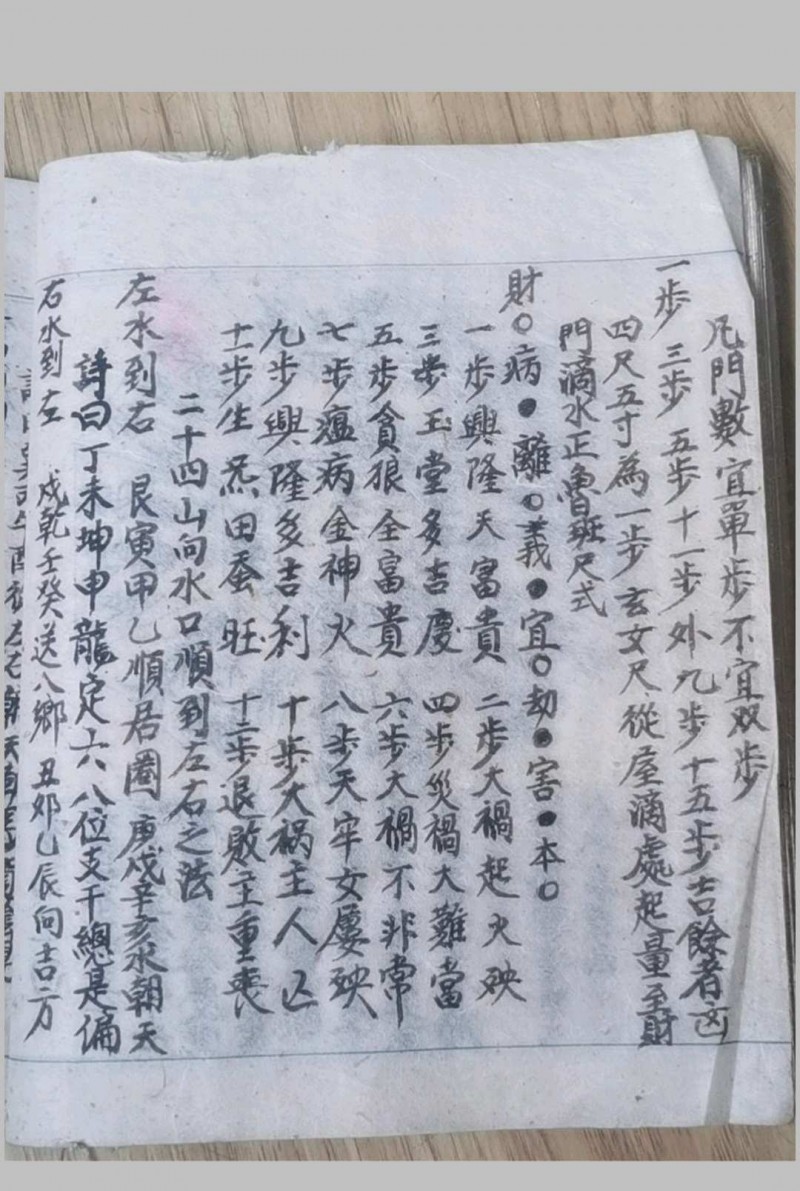 凡門數宜單步不宜双步
一步 三步 五步十一步外九步十五步吉餘者凶
四尺五寸為一步玄女尺從屋滴處起量至財
門滴水正魯班尺式
財○病●離○義●宜○劫●害●本○
一步興隆天富貴 二步大禍起火殃
三步玉堂多吉慶 四步災禍大難當
五步貪狼全富貴 六步大禍不非常
七步瘟病金神火 八步天牢女屢殃
九步興隆多吉利 十步大禍主人亡
十一步生炁田蚕旺 十二步退敗主重喪
二十四山向水口順到左右之法
左水到右 艮寅甲乙順居圈 庚戌辛亥水朝天
詩曰丁未坤申龍定六八位支干總是偏
右水到左 戌乾壬癸送八鄉 丑夘乙辰向吉方